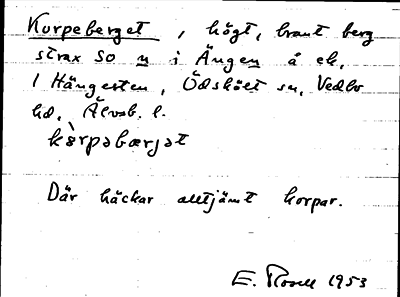 Korpeberget, högt, brant berg
strax SO n i Ängen å ek.
1 Hängesten, Ödsköet sn, Vedbo
hd, Älvsb. l.
kòrpəbærjət
Där häckar alltjämt korpar.
E. Rosell 1953